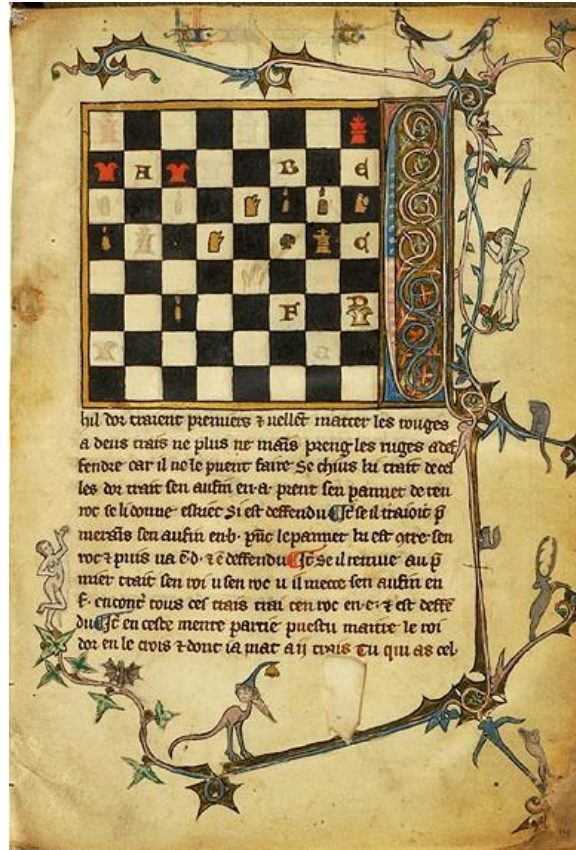 A B e
d
F D
hil dor traient premiers ⁊ uellẽt matter les rouges
a deus trais ne plus ne mains preng les ruges a def
fendre car il ne le puent faire Se chius ki trait de cel
les dor trait sen aufin en·a· prent sen paunet de ten
roc se li donne eskiec Si est deffendu Et se il traioit p̃
merains sen aufin en·b· le paunet ki est sen
roc ⁊ puis ua ẽ·d· ⁊ ẽ deffendu Et se il remue au p̃
mier trait sen roi u sen roc u il mecce sen aufin en
f· tous ces trais trai ten roc en·e· ⁊ est deffẽ
du Et en ceste partie pues tu le roi
dor en le crois ⁊ dont ia mat a ij trais Tu qui as cel